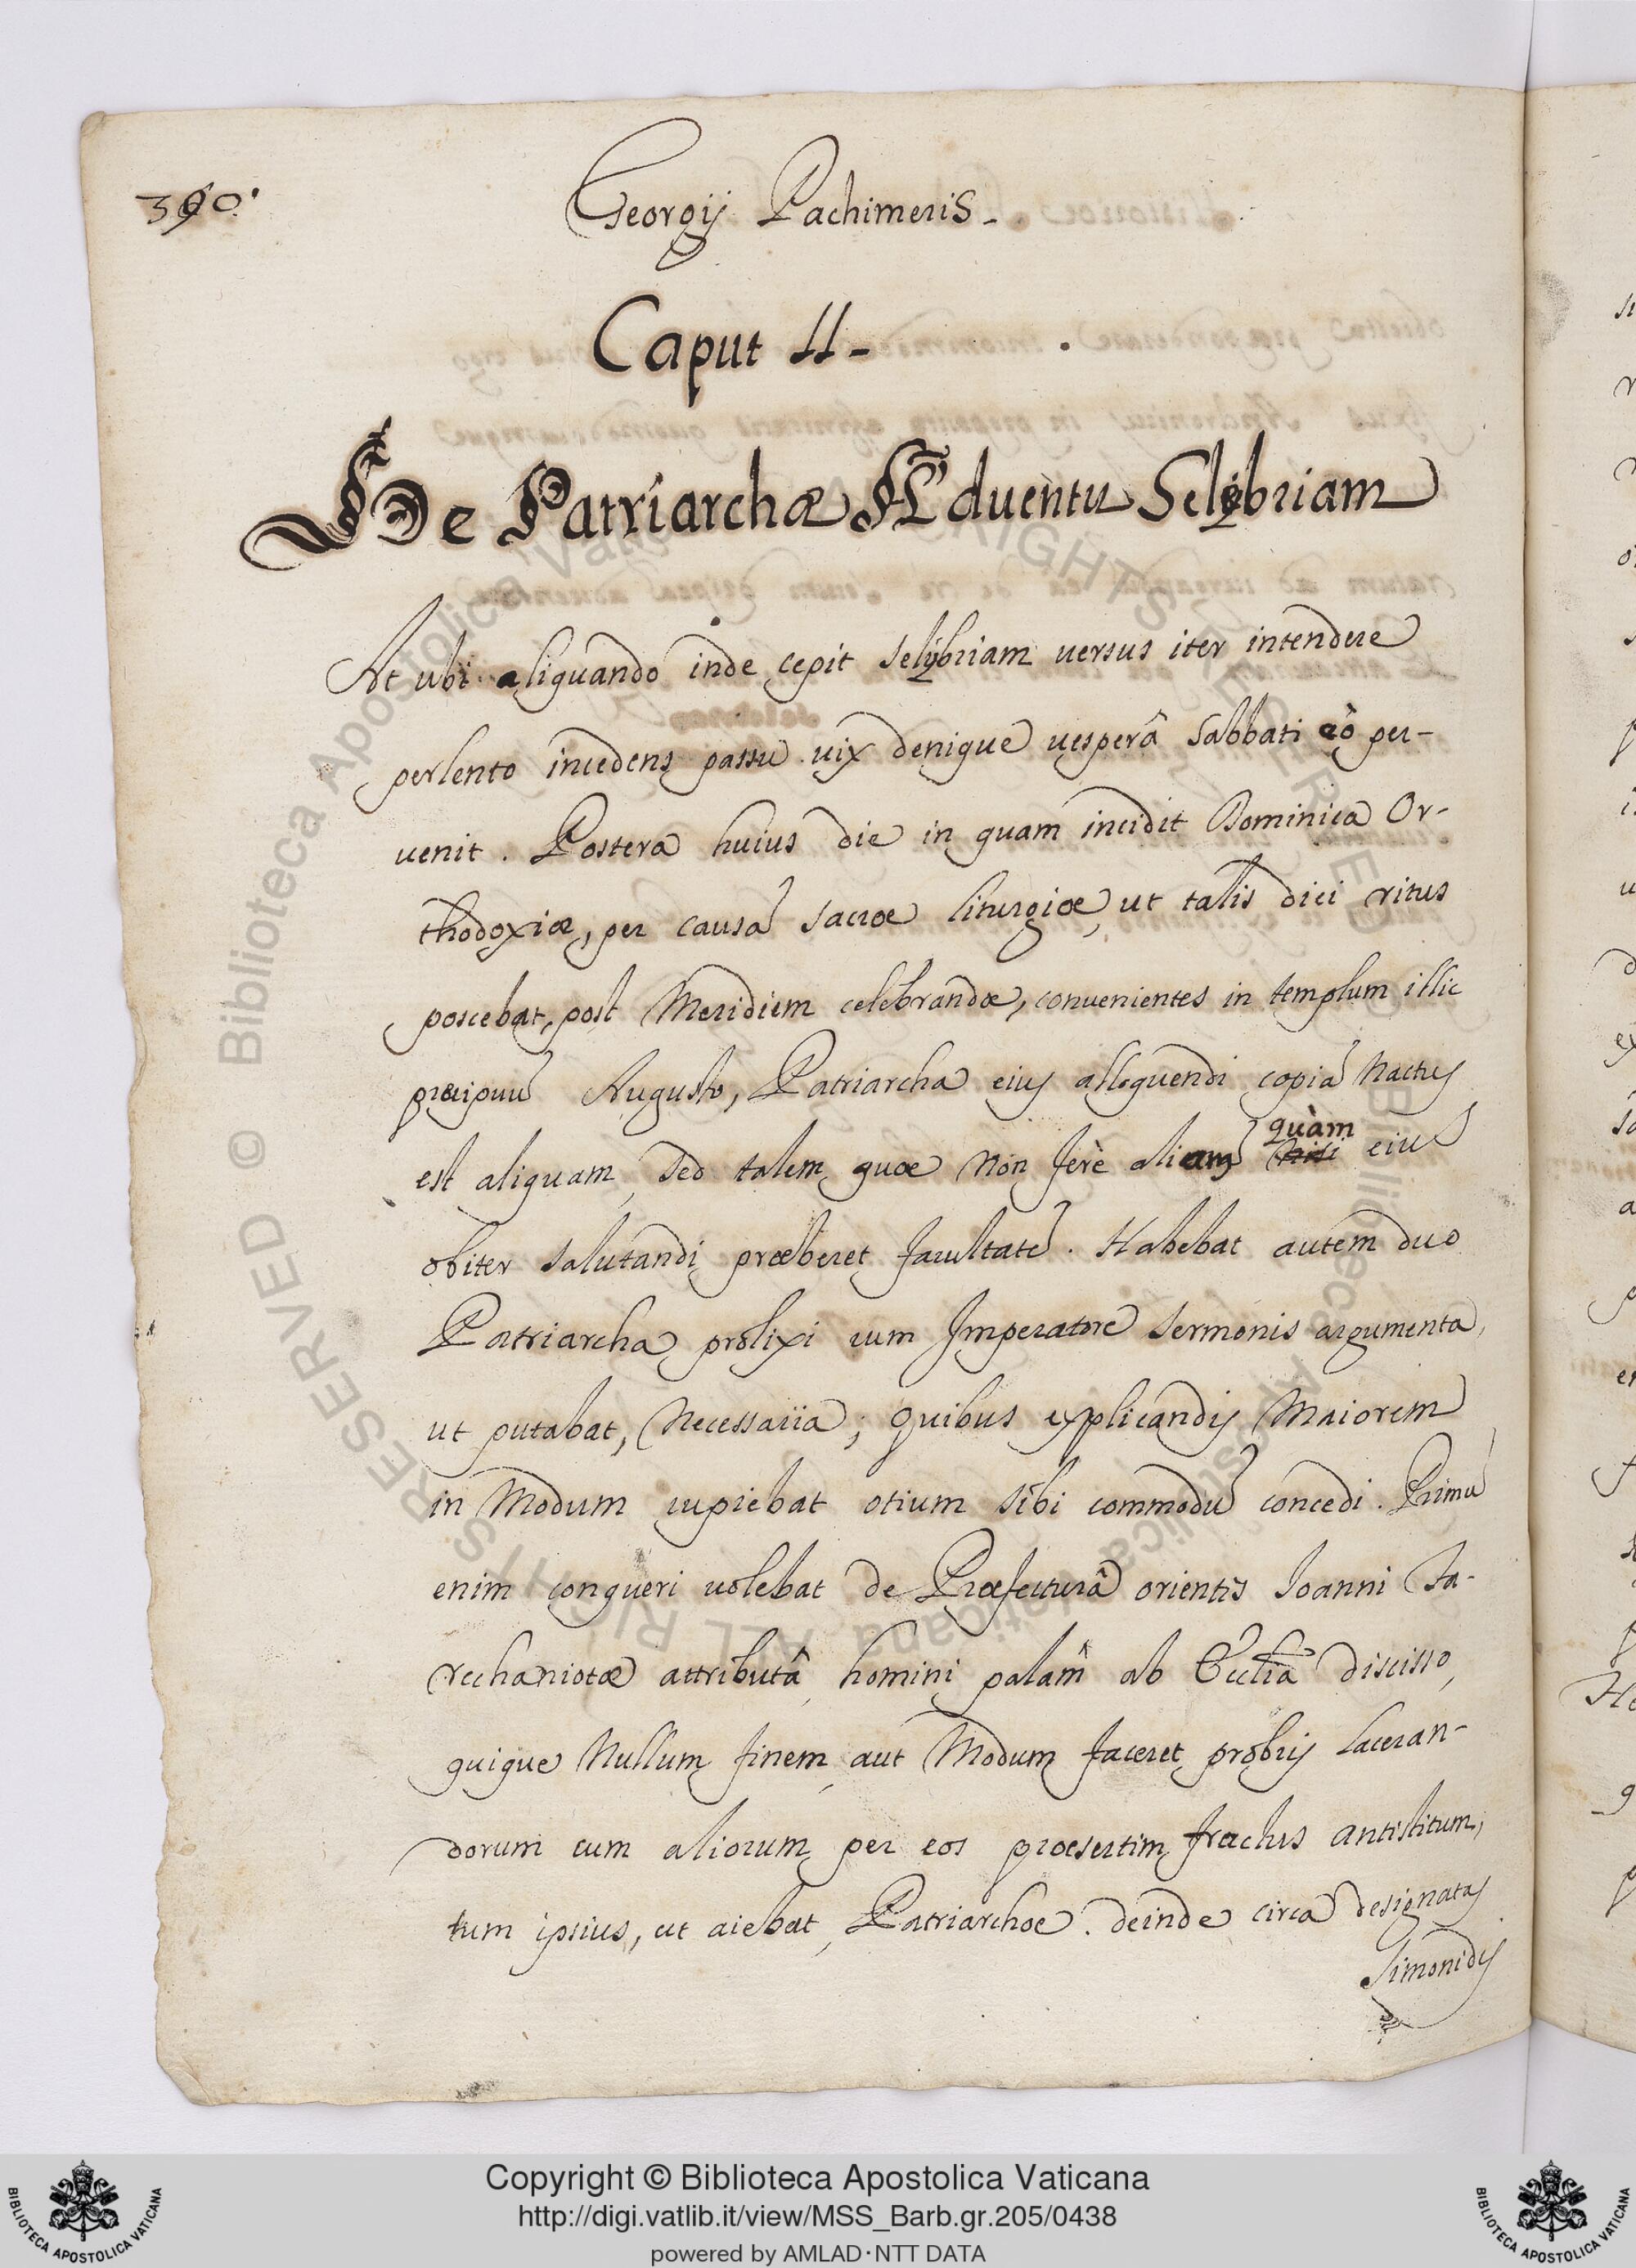 390.
Georgij Pachimeris.
Caput II.
De Patriarchæ Aduentu Selybriam
At ubi aliquando inde cepit Selybriam uersus iter intendere
perlento incedens passu uix denique uesperâ Sabbati eò per-
uenit. Postera huius die in quam incidit Dominica Or-
thodoxiæ, per causã sacræ liturgiæ, ut talis diei ritus
poscebat, post Meridiem celebrandæ, conuenientes in templum illic
præcipuũ Augusto, Patriarcha eius alloquendi copiã nactus
quàm
est aliquam, sed talem, quæ non ferè aliam nisi eius
obiter salutandi præberet facultatẽ. Habebat autem duo
Patriarcha prolixi cum Imperatore sermonis argumenta,
ut putabat, necessaria; quibus explicandis Maiorem
in Modum cupiebat otium sibi commodũ concedi. Primũ
enim conqueri uolebat de Præfecturâ orientis Ioanni Ta-
rchaniotæ attributâ, homini palam ab Ecclia discisso,
quique Nullum finem, aut Modum faceret probris laceran-
dorum cum aliorum, per eos præsertim tractus antistitum,
tum ipsius, ut aiebat, Patriarchæ. deinde circa designatas
Simonidis
Copyright © Biblioteca Apostolica Vaticana
http://digi.vatlib.it/view/MSS_Barb.gr.205/0438
powered by AMLAD·NTT DATA
BIBLIOTECA APOSTOLICA VATICANA
BIBLIOTECA APOSTOLICA VATICANA